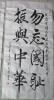 勿忘國耻
振興中華